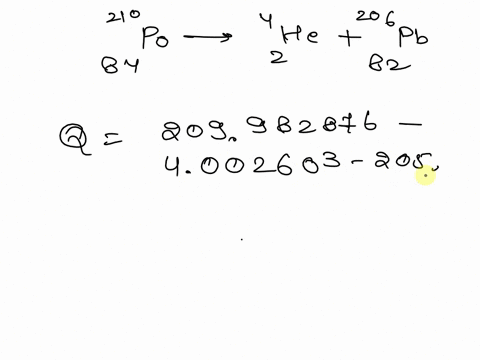 ²¹⁰₈₄Po ⟶ ⁴₂He + ²⁰⁶₈₂Pb
Q = 209.982876 −
4.002603 − 205.